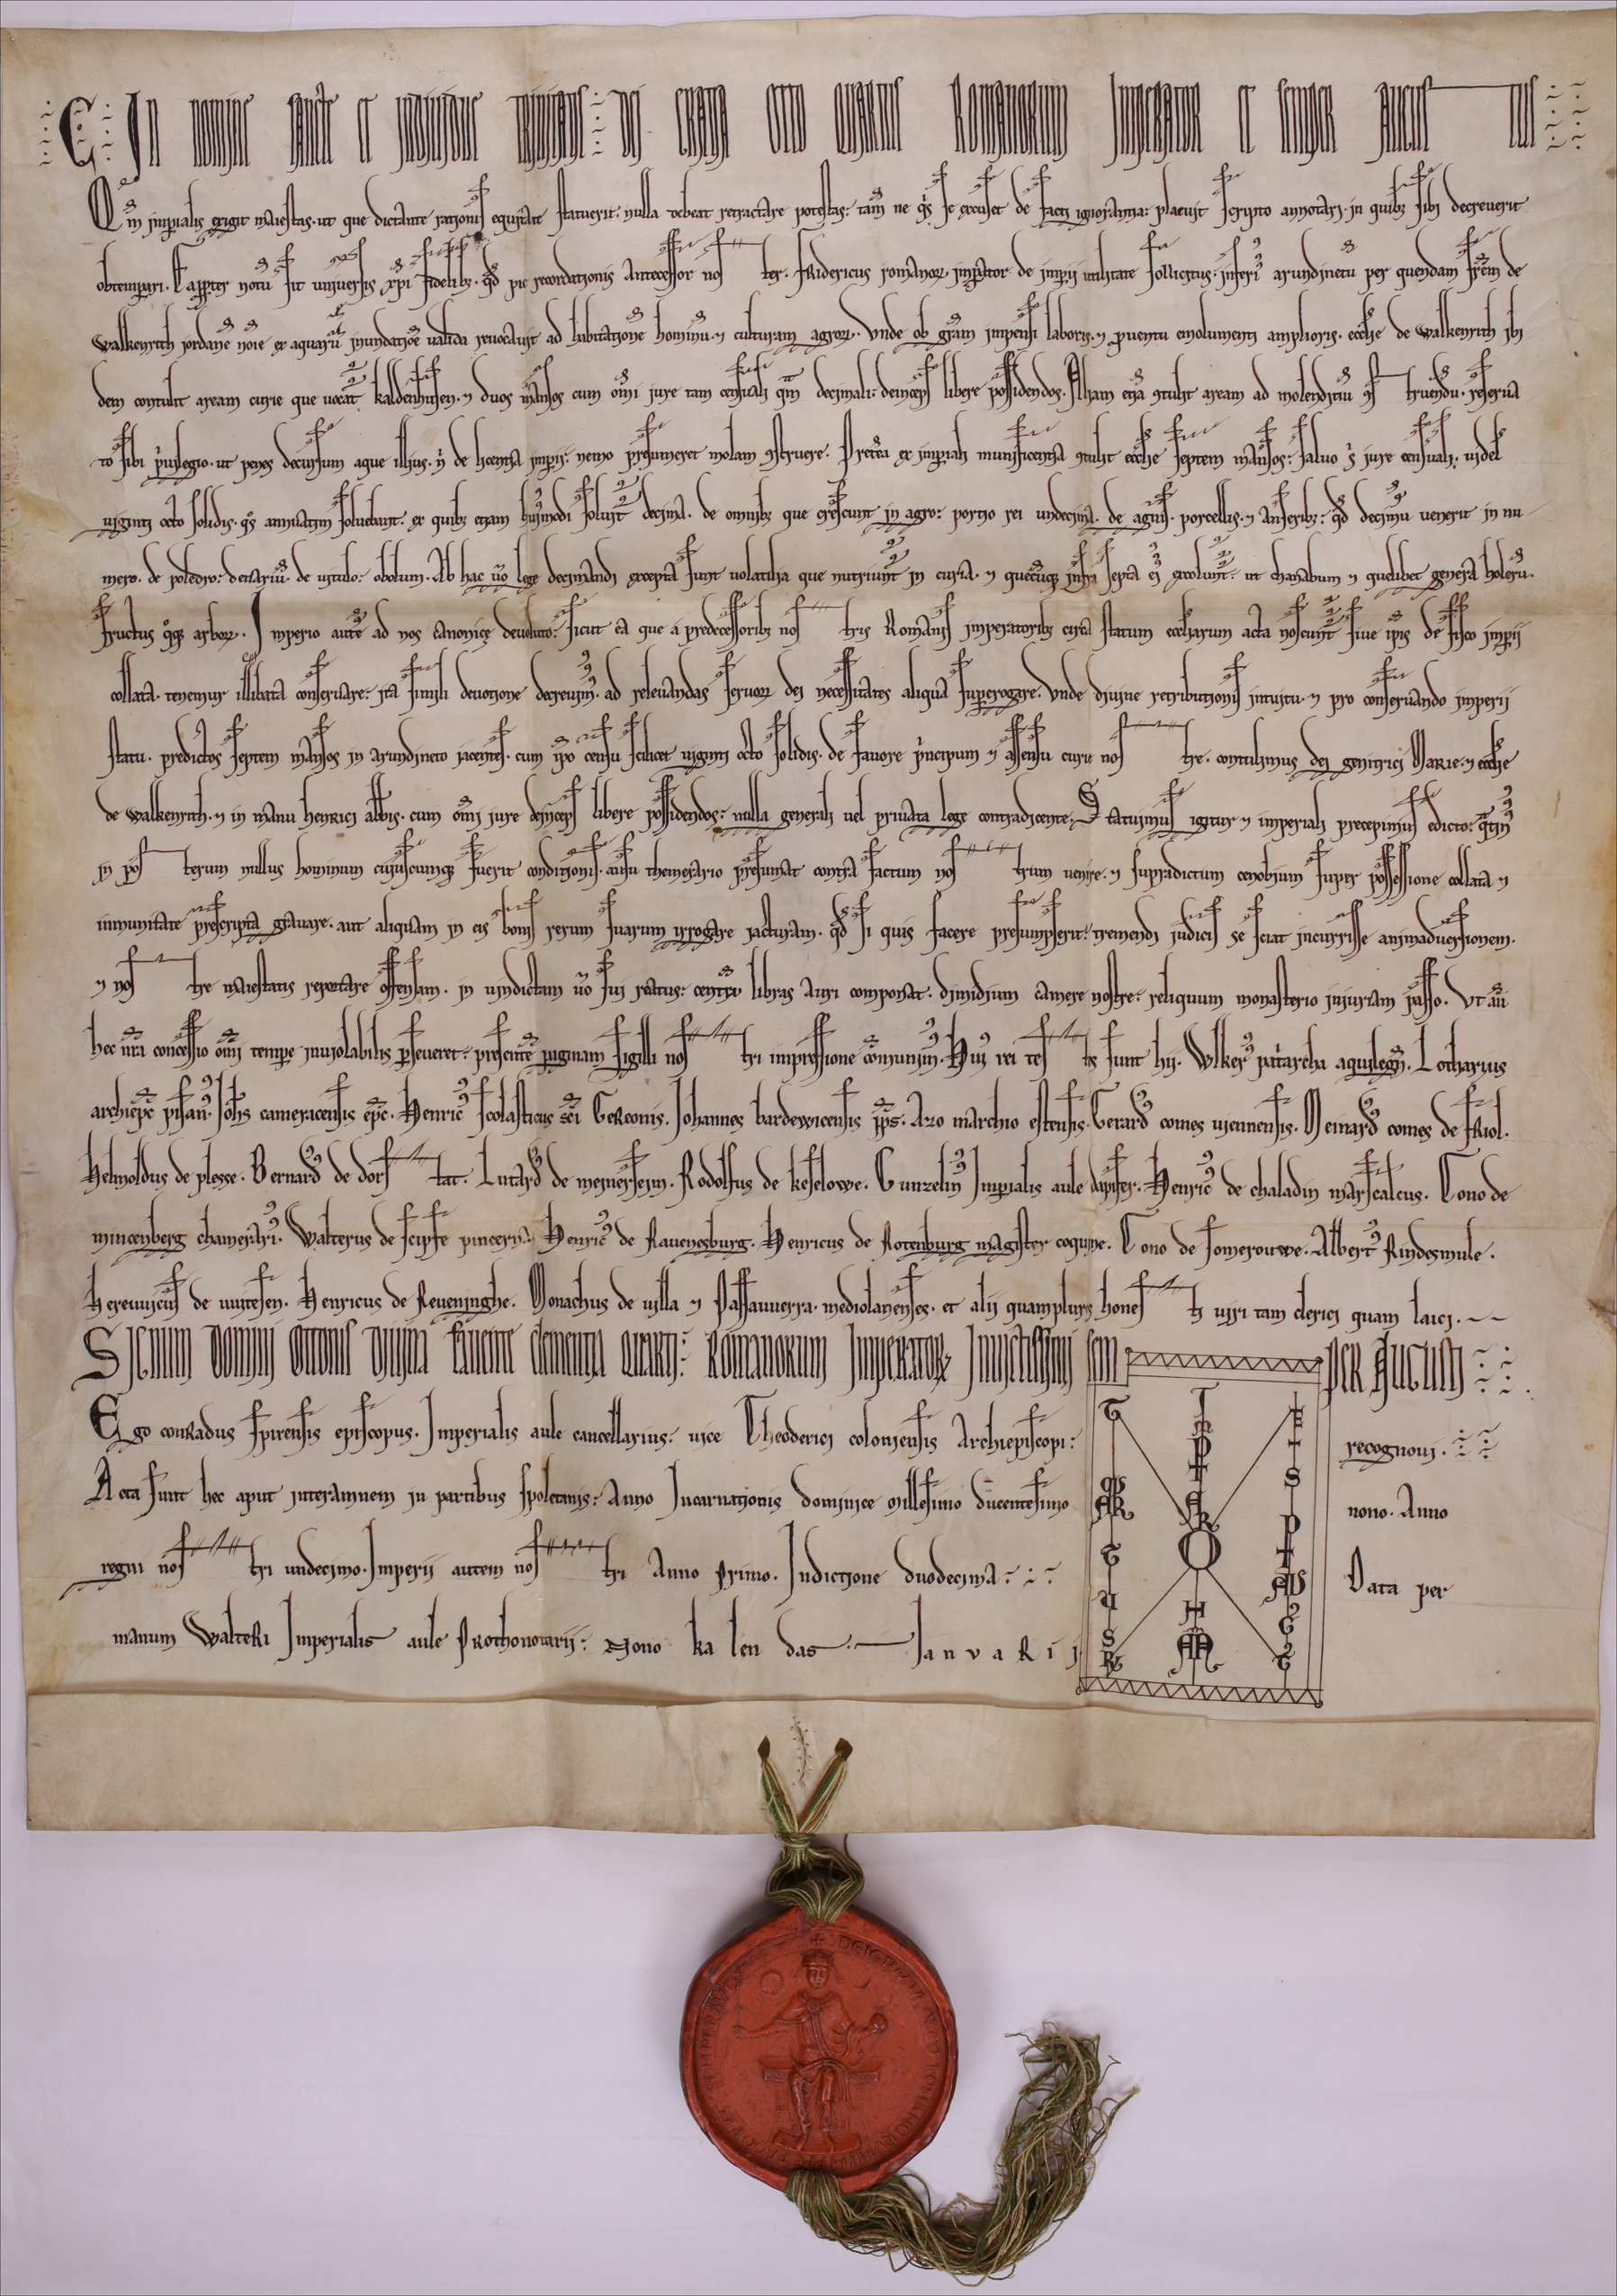 C In nomine sancte et indiuidue trinitatis: Dei gratia Otto quartus Romanorum Imperator et semper augustus
Qm̄ imperialis exigit maiestas. ut que dictante rationis equitate statuerit. nulla debeat retractare potestas: tam̄ ne qͥs se excuset de facti ignorantia: placuit scripto annotari. in quibꝫ sibi decreuerit
obtemperari. Eapropter notū sit uniuersis xp̄i fidelibꝫ. qd̄ pie recordationis antecessor noster. Fridericus romanoꝝ imperator de imperij utilitate sollicitus. inferiꝰ arundinetū per quendam frēm de
walkenrith jordanē noīe ex aquarū inundatiōe ualida reuocauit ad habitationē hominū. ⁊ culturam agroꝝ. Vnde ob grām impensi laboris. ⁊ prouentū emolumenti amplioris. eccl̄ie de walkenrith ibi
dem contulit aream curie que uocat̄ kaldenhusen. ⁊ duos mansos cum om̄i jure tam censuali qm̄ decimali: deinceps libere possidendos. Aliam etiā ꝯtulit aream ad molendinū ꝯstruendū. reserua
to sibi priuilegio. ut penes decursum aque illius. ñ de licentia imperij: nemo presumeret molam ꝯstruere. Preterea ex imperiali munificentia ꝯtulit eccl̄ie septem mansos: saluo sͥ jure censuali. videl
uiginti octo solidis. qͦs annuatim soluebant. ex quibꝫ etiam huiꝰmodi soluit̄ decima. de omnibꝫ que crescunt in agro: portio rei undecima. de agnis. porcellis. ⁊ anseribꝫ: qd̄ decimū uenerit in nu
mero. de poledro: denariū. de uitulo: obolum. Ab hac ū lege decimandi excepta sunt uolatilia que nutriunt̄ in curia. ⁊ quecūqꝫ infra septa eiꝰ excolunt̄: ut canabum ⁊ quelibet genera holerū.
fructus qͦqꝫ arboꝝ. Imperio autē ad nos canonice deuoluto: sicut ea que a predecessoribꝫ nostris Romanis imperatoribꝫ circa statum eccl̄iarum acta noscunt̄ siue ip̄is de fisco imperij
collata. tenemur illibata conseruare: ita simili deuotione decreuimꝰ. ad releuandas seruoꝝ dei necessitates aliqua superogare. Vnde diuine retributionis intuitu. ⁊ pro conseruando imperij
statu. predictos septem mansos in arundineto jacentes. cum ip̄o censu scilicet uiginti octo solidis. de fauore principum ⁊ assensu curie nostre. contulimus dei genitrici Marie. ⁊ eccl̄ie
de walkenrith. ⁊ in manu henrici abb̄is. cum om̄i jure deinceps libere possidendos: nulla generali uel priuata lege contradicente. Statuimus igitur ⁊ imperiali precepimus edicto: qͣtinꝰ
in posterum nullus hominum cujuscumqꝫ fuerit conditionis. ausu themerario presumat contra factum nostrum uenire. ⁊ supradictum cenobium super possessione collata ⁊
inmunitate prescripta grauare. aut aliquam in eis bonis rerum suarum irrogare jacturam. qd̄ si quis facere presumpserit: tremendi judicij se sciat incurrisse animaduersionem.
⁊ nostre maiestatis reportare offensam. in uindictam ū sui reatus: centū libras auri componat. dimidium camere nostre: reliquum monasterio injuriam passo. Vt aū
hec nr̄a concessio om̄i tempe inuiolabilis perseueret: presentē paginam sigilli nostri impressione cōmunimꝰ. Huiꝰ rei testes sunt hij. Wlkerꝰ patriarcha aquilegiē. Lotharius
archiep̄c pisan̄. Joh̄s cameracensis ep̄c. Henricꝰ scolasticus sc̄i Gereonis. Johannes bardewicensis p̄p̄s. Azo marchio estensis. Gerardꝰ comes uiennensis. Meinardꝰ comes de friol.
Helmoldus de plesse. Bernardꝰ de dorstat. Lutardꝰ de meinersem. Rodolfus de keselowe. Gunzelinꝰ Imperialis aule dapifer. Henricꝰ de chaladin marscalcus. Cono de
mincenberg camerariꝰ. Walterus de scipfe pincerna. Henricꝰ de Rauenesburg. Henricus de Rotenburg magister coquine. Cono de somerouwe. Albertꝰ Rindesmule.
Herewicus de uuitesen. Henricus de Reueninghe. Monachus de uilla ⁊ Passauuerra. mediolanenses. et alij quamplures honesti uiri tam clerici quam laici.
Signum domini Ottonis diuina fauente clementia quarti: Romanorum Imperatoris Inuictissimi semper Augusti
Ego conRadus spirensis episcopus. Imperialis aule cancellarius: uice Theoderici coloniensis Archiepiscopi: recognoui.
Acta sunt hec aput interamnem in partibus spoletanis: Anno Incarnationis dominice millesimo ducentesimo nono. Anno
regni nostri undecimo. Imperij autem nostri Anno Primo. Indictione duodecima Data per
manum WalteRi Imperialis aule PRothonotarij: Nono kalendas JanvaRij